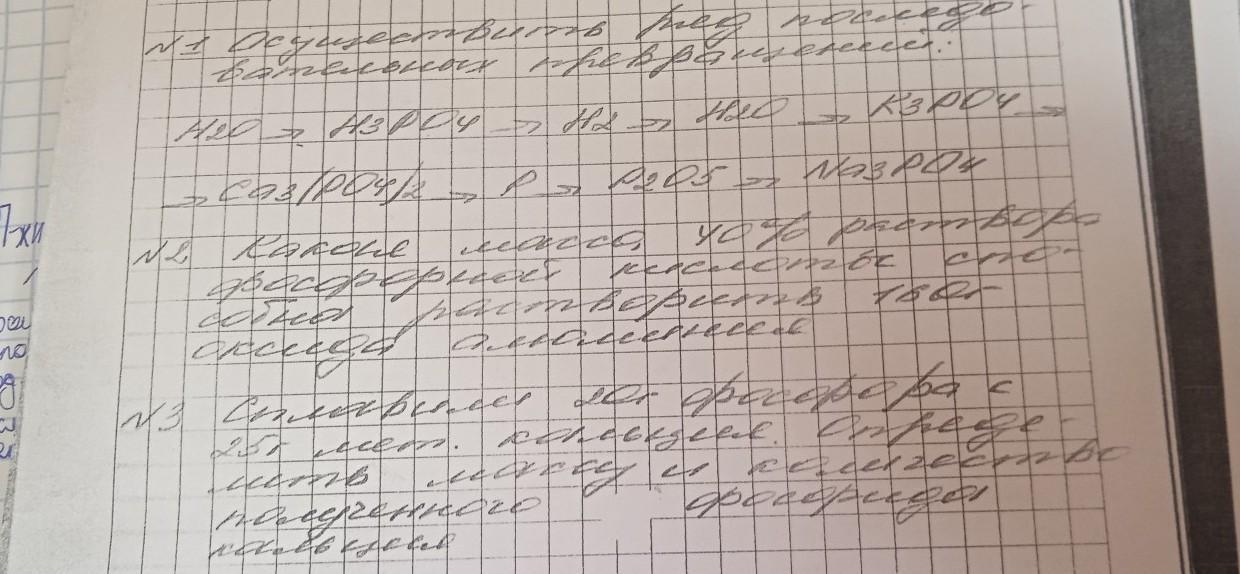 N1 Осуществить ряд последо-
вательных превращений:
H2O → H3PO4 → H2 → H2O → K3PO4 →
→ Ca3(PO4)2 → P → P2O5 → Na3PO4
N2 Какая масса 40% раствора
фосфорной кислоты спо-
собна растворить 160г
оксида алюминия
N3 Сплавили 20г фосфора с
25г мет. кальция. Опреде-
лить массу и количество
полученного фосфида
кальция